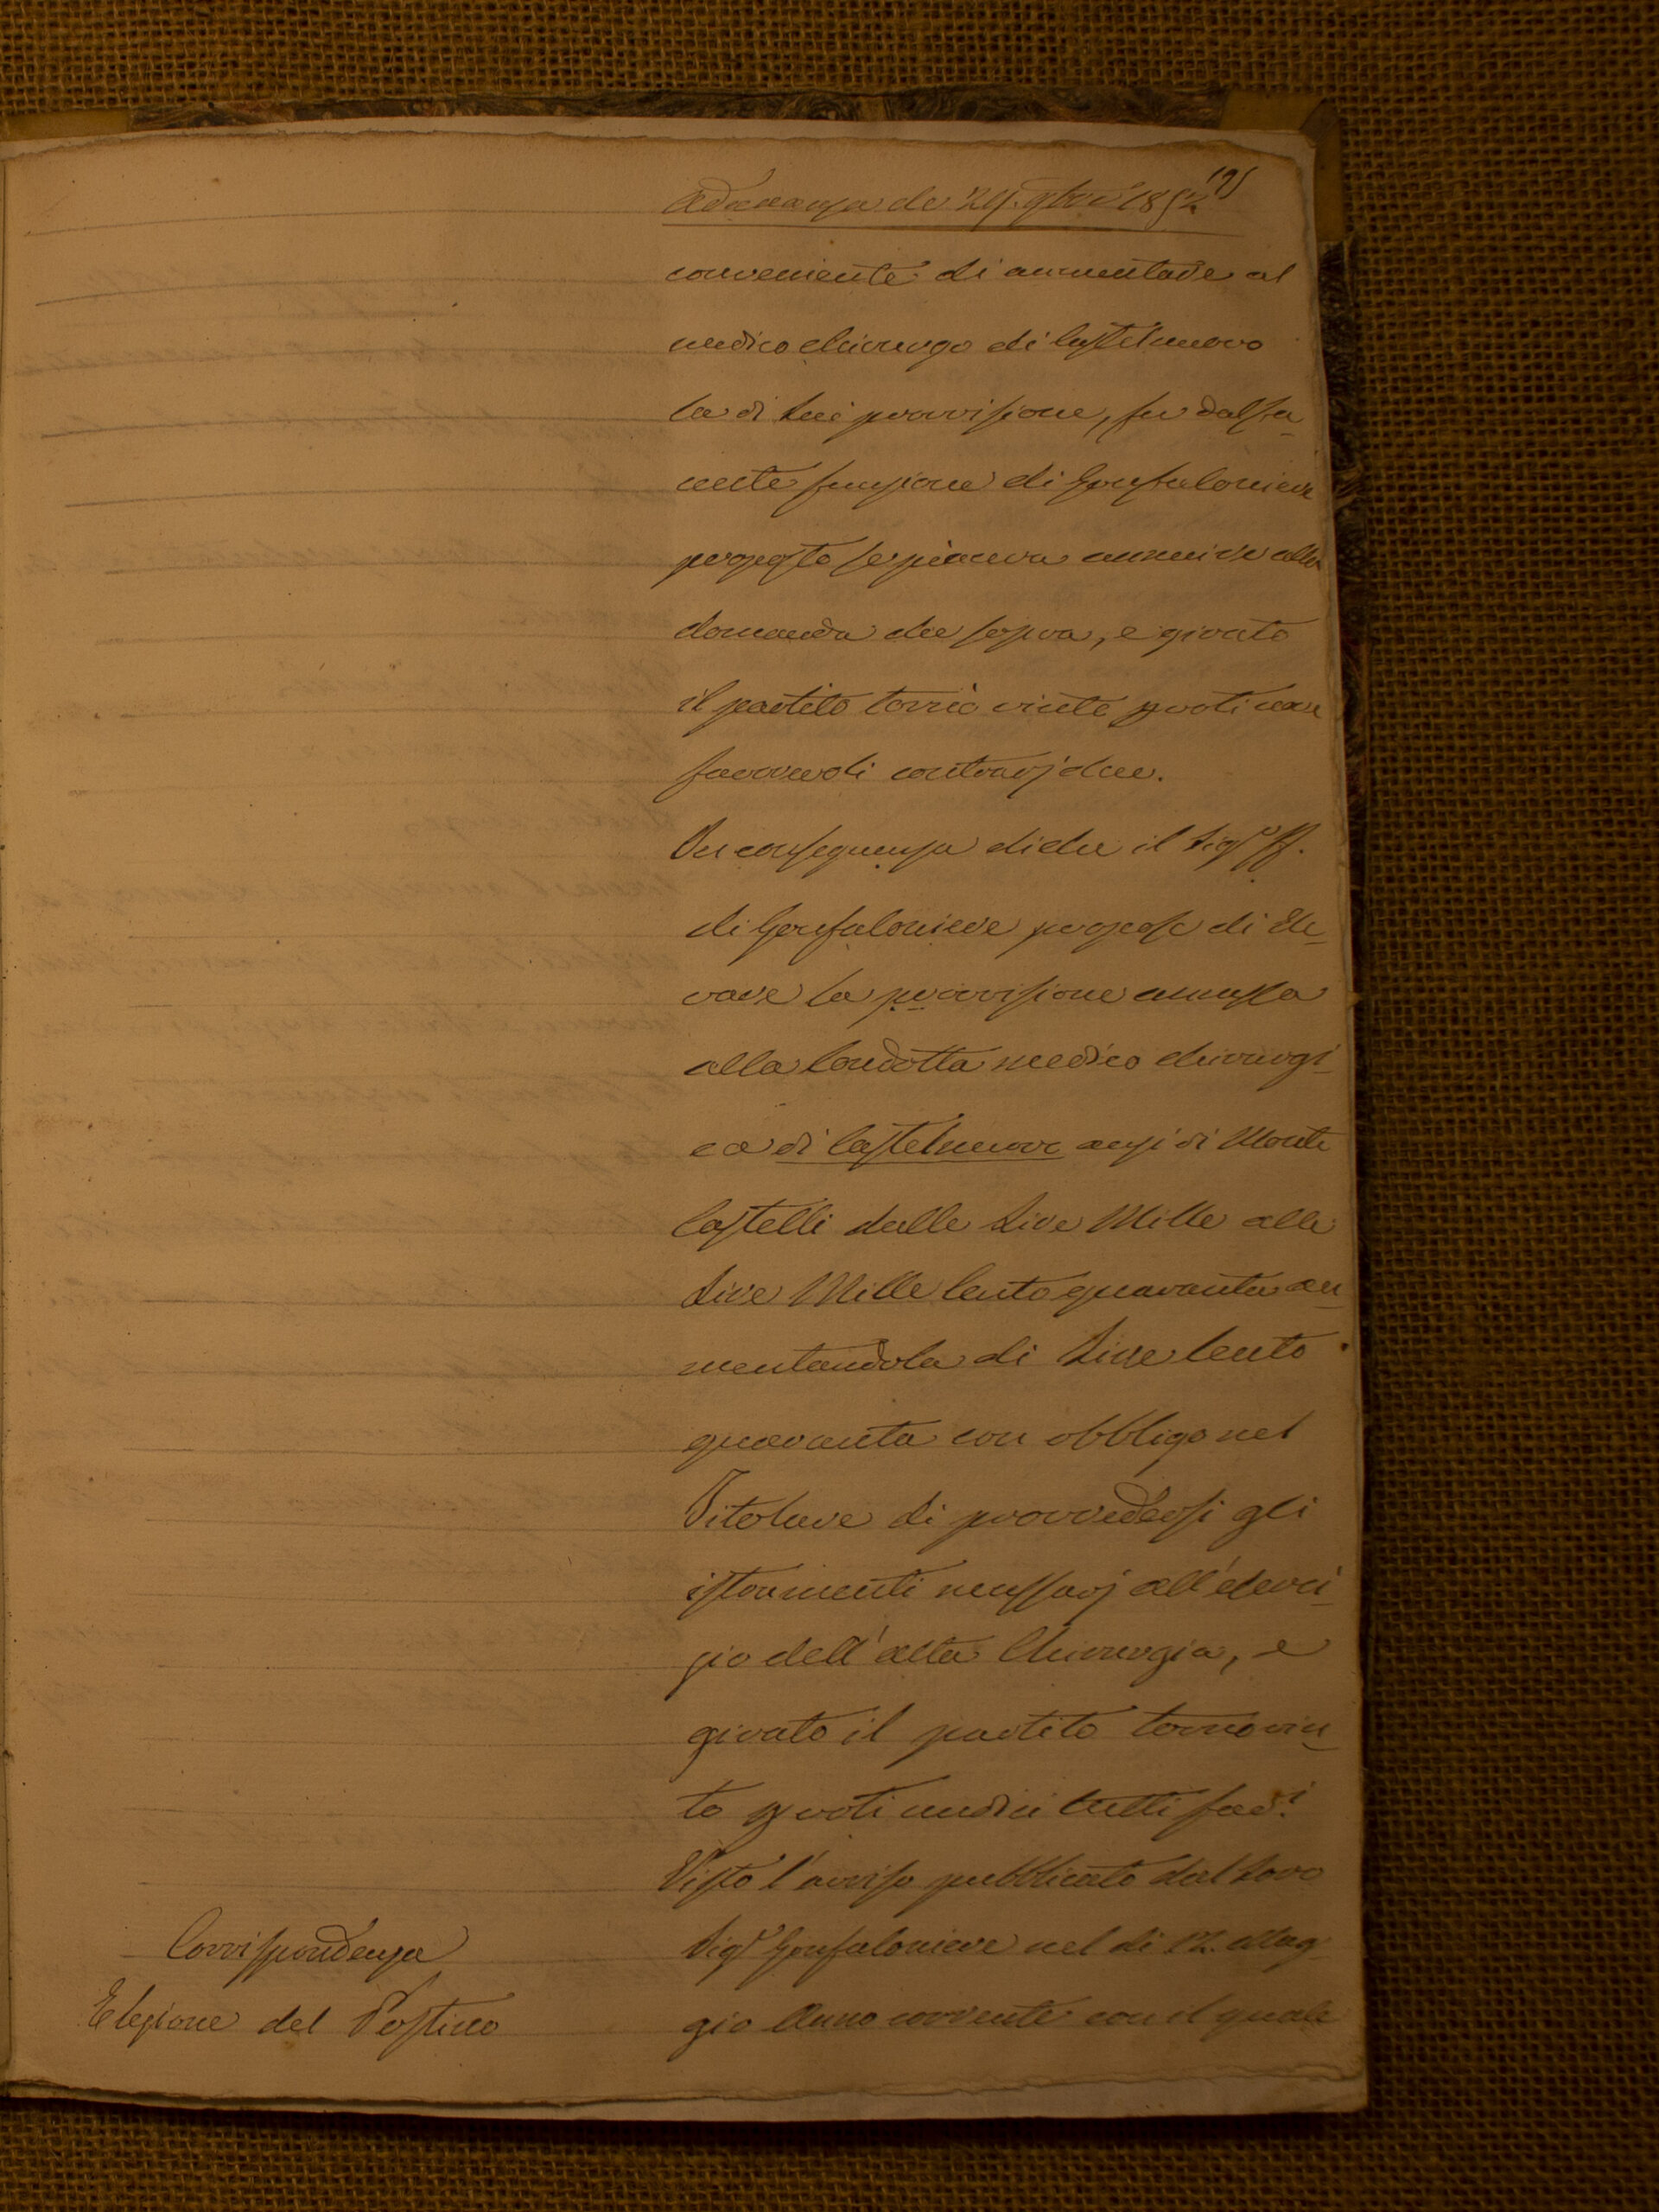 Adunanza de 29. 9bre 1852
conveniente di aumentare al
medico chirurgo di Castelnuovo
la di lui provvisione, fu dal fa-
cente funzione di Gonfaloniere
proposto se piaceva annuire alla
domanda che sopra, e girato
il partito tornò vinto p voti nove
favorevoli contrarj due.
In conseguenza di che il Sigr ff.
di Gonfaloniere propose di Ele-
vare la provvisione annessa
alla Condotta medico chirurgi-
ca di Castelnuovo anzi di Monte
Castelli dalle Lire Mille alle
Lire Mille Cento quaranta au-
mentandola di Lire Cento
quaranta con obbligo nel
Titolare di provvedersi gli
istrumenti necessarj all'eserci-
zio dell'alta Chirurgia, e
girato il partito tornò vin-
to p voti undici tutti favi
Visto l'avviso pubblicato dal Loro
Corrispondenza
Sigr Gonfaloniere nel di 12. Mag-
Elezione del Postino
gio Anno corrente con il quale